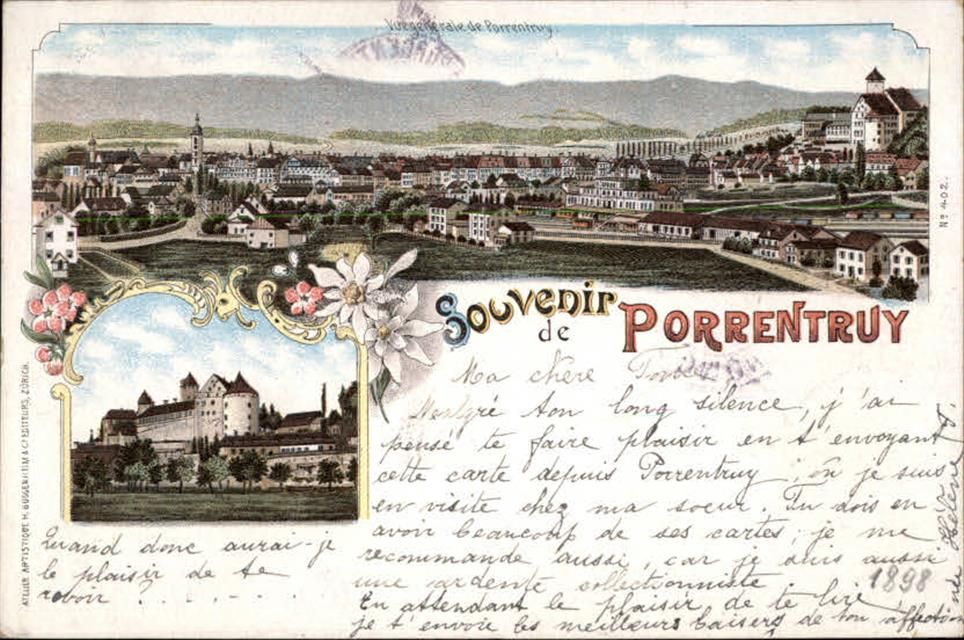 Vue générale de Porrentruy.
No 402.
Souvenir
de PORRENTRUY
ATELIER ARTISTIQUE H. GUGGENHEIM & Co EDITEURS, ZÜRICH.
Ma chère
Malgré ton long silence, j'ai
pensé te faire plaisir en t'envoyant
cette carte depuis Porrentruy, où je suis
en visite chez ma soeur. Tu dois en
avoir beaucoup de ses cartes; je me
recommande aussi, car je suis aussi
une ardente collectionniste.
En attendant le plaisir de te lire
je t'envoie les meilleurs baisers de ton affection
née Hélène
Quand donc aurai-je
le plaisir de te
revoir ? . - . - . -
1898